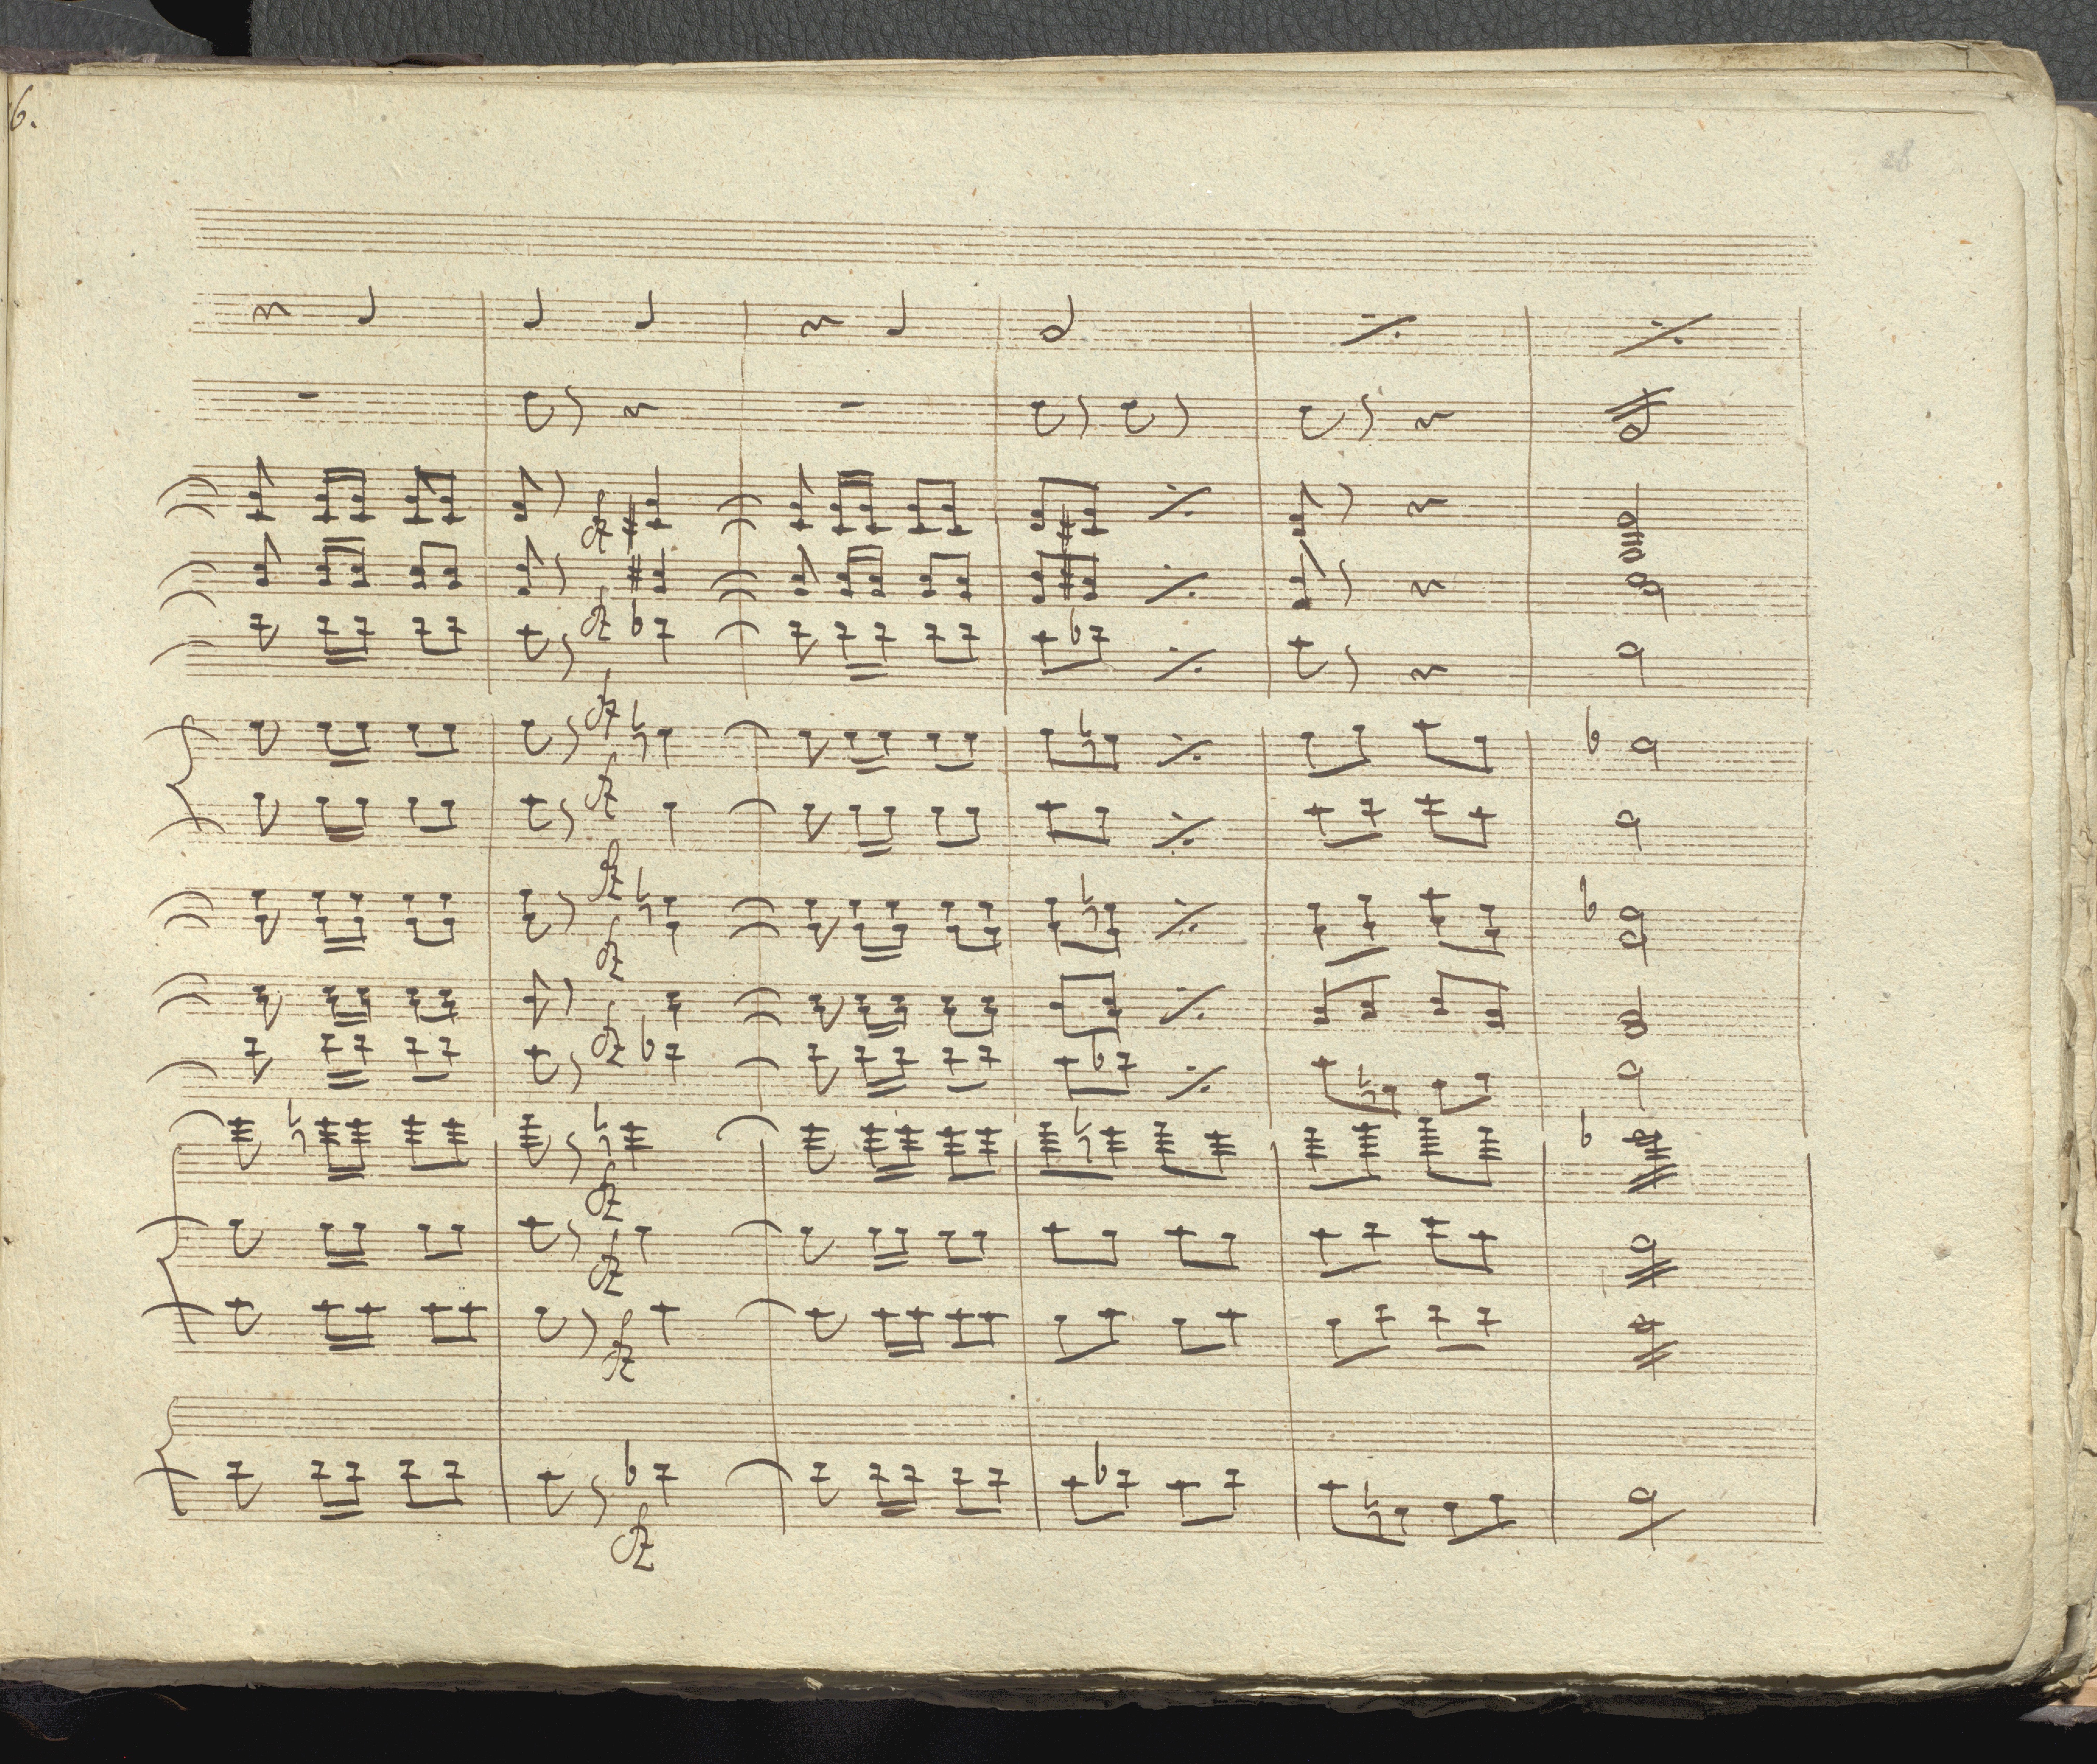 6.
28
fz
fz
fz
fz
fz
fz
fz
fz
fz
fz
fz